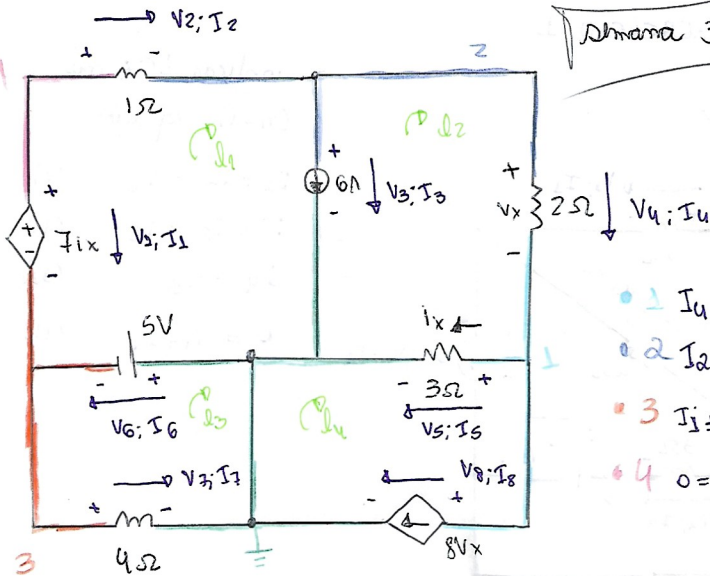 V2; I2
semana 3
+ -
2
1Ω
l1
l2
+
6A
-
V3; I3
+
Vx
-
2Ω
V4; I4
+
+
-
7ix
-
V1; I1
ix
5V
1 I4
1
2 I2
- +
- 3Ω +
3 Ij=
V6; I6
l3
l4
V5; I5
4 0=
V7; I7
V8; I8
+ -
- +
3
4Ω
8Vx